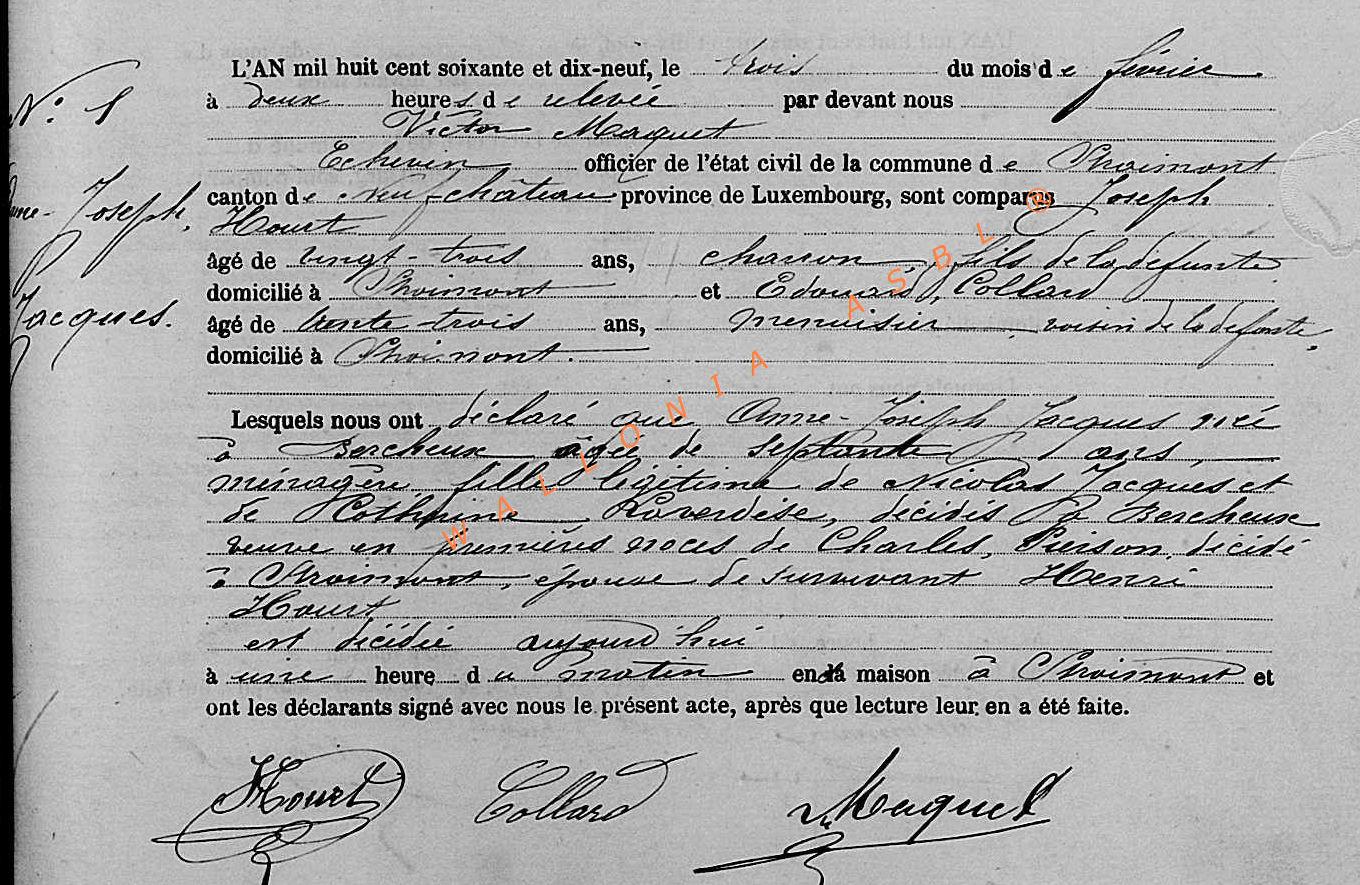 L'AN mil huit cent soixante et dix-neuf, le trois du mois de février
N.° 8
à deux heures de relevée par devant nous
Victor Maquet
Echevin officier de l'état civil de la commune de Straimont
canton de Neufchâteau province de Luxembourg, sont comparus Joseph
Anne-Joseph
Jacques.
Houet
âgé de vingt-trois ans, charron, fils de la defunte
domicilié à Straimont et Edouard, Collard
âgé de trente-trois ans, menuisier voisin de la defunte,
domicilié à Straimont.
Lesquels nous ont déclaré que Anne-Joseph Jacques née
à Bercheux âgée de septante ans,
ménagère, fille légitime de Nicolas Jacques et
de Cathrine décédés à Bercheux
veuve en premières noces de Charles, décédé
à Straimont, épouse de survivant Henri
Houet
est décédée aujourd'hui
à une heure du matin en sa maison à Straimont et
ont les déclarants signé avec nous le présent acte, après que lecture leur en a été faite.
Houet Collard Maquet
WALLONIA ASBL ©